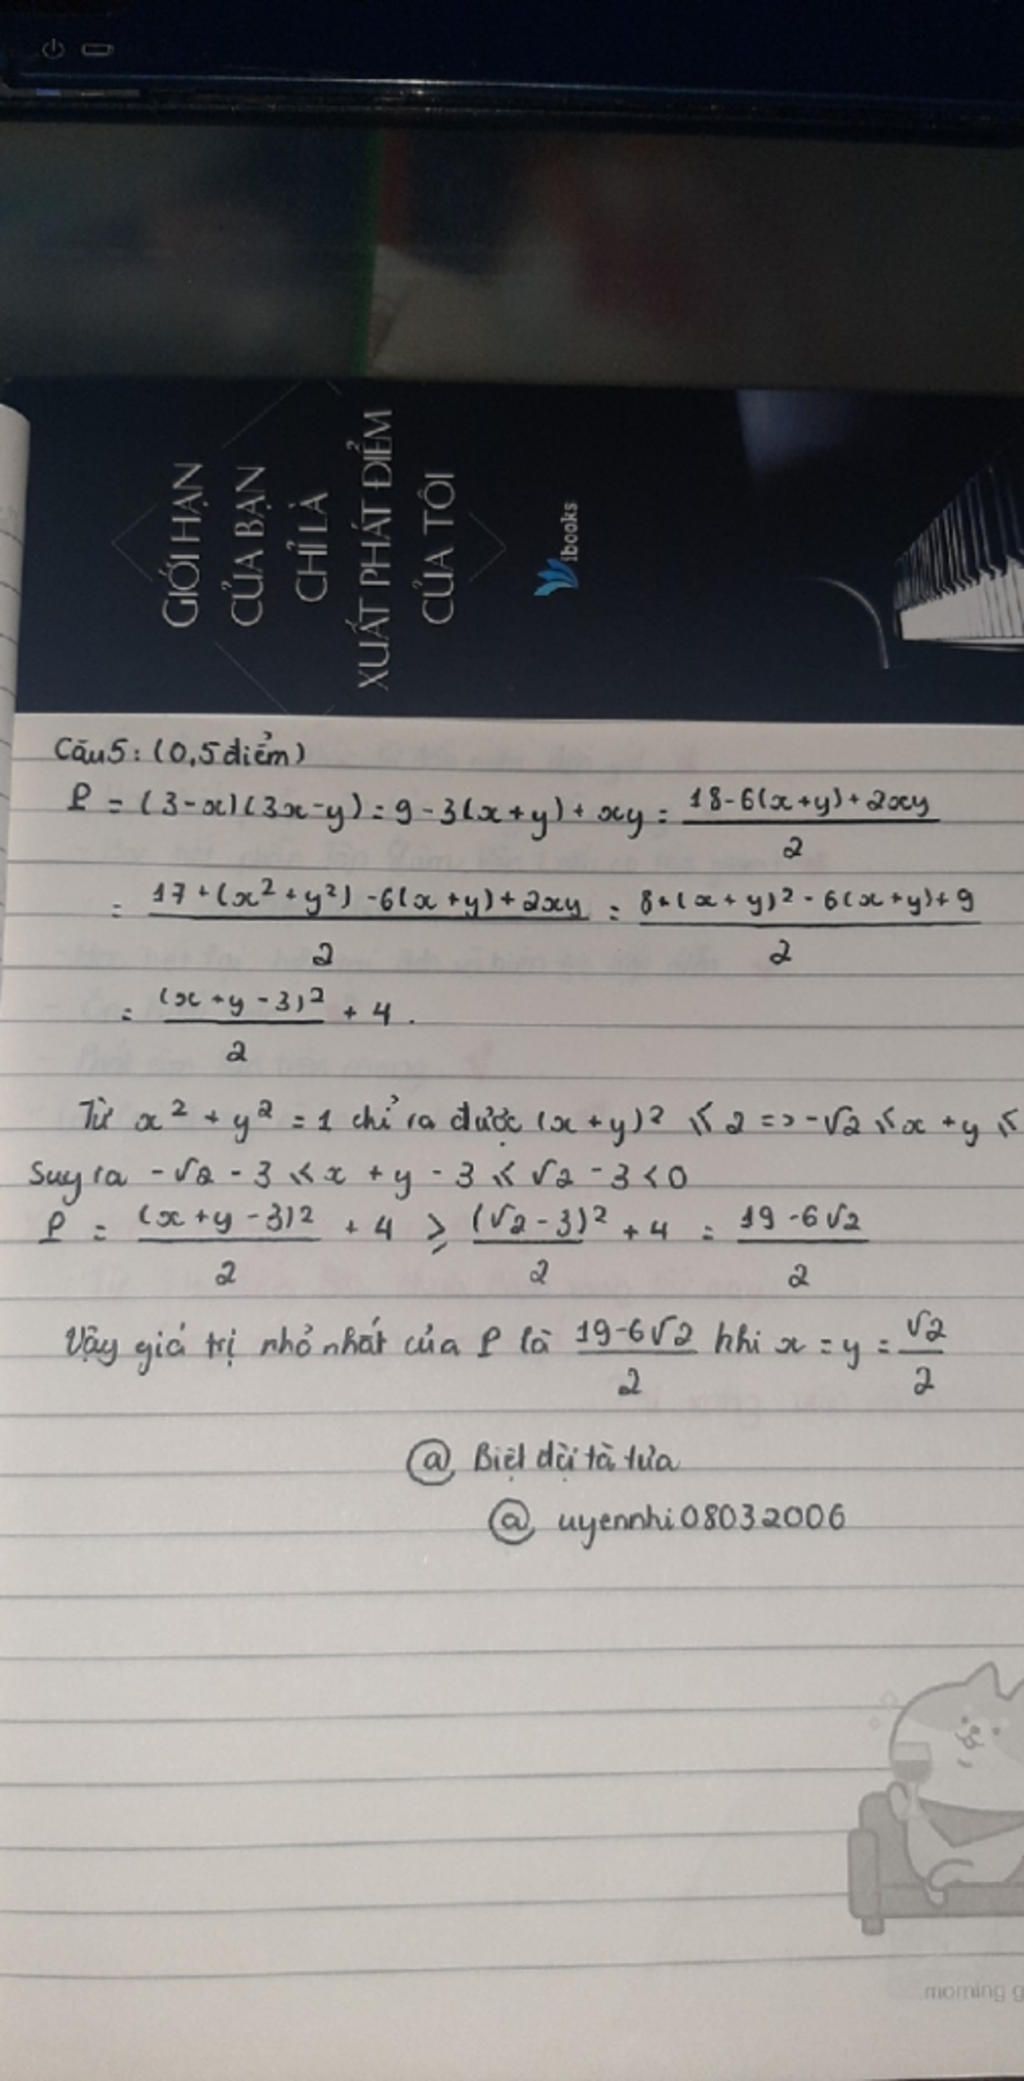 GIỚI HẠN
CỦA BẠN
CHỈ LÀ
XUẤT PHÁT ĐIỂM
CỦA TÔI
ibooks
Câu 5: (0,5 điểm)
P = (3-x)(3x-y) = 9-3(x+y)+xy = \frac{18-6(x+y)+2xy}{2}
= \frac{17+(x²+y²)-6(x+y)+2xy}{2} = \frac{8+(x+y)²-6(x+y)+9}{2}
= \frac{(x+y-3)²}{2} + 4.
Từ x² + y² = 1 chỉ ra được (x+y)² ≤ 2 => -√2 ≤ x + y ≤
Suy ra -√2 - 3 ≤ x + y - 3 ≤ √2 - 3 < 0
P = \frac{(x+y-3)²}{2} + 4 ≥ \frac{(√2-3)²}{2} + 4 = \frac{19-6√2}{2}
Vậy giá trị nhỏ nhất của P là \frac{19-6√2}{2} khi x = y = \frac{√2}{2}
@ Biệt đội tà tưa
@ uyennhi08032006
morning g